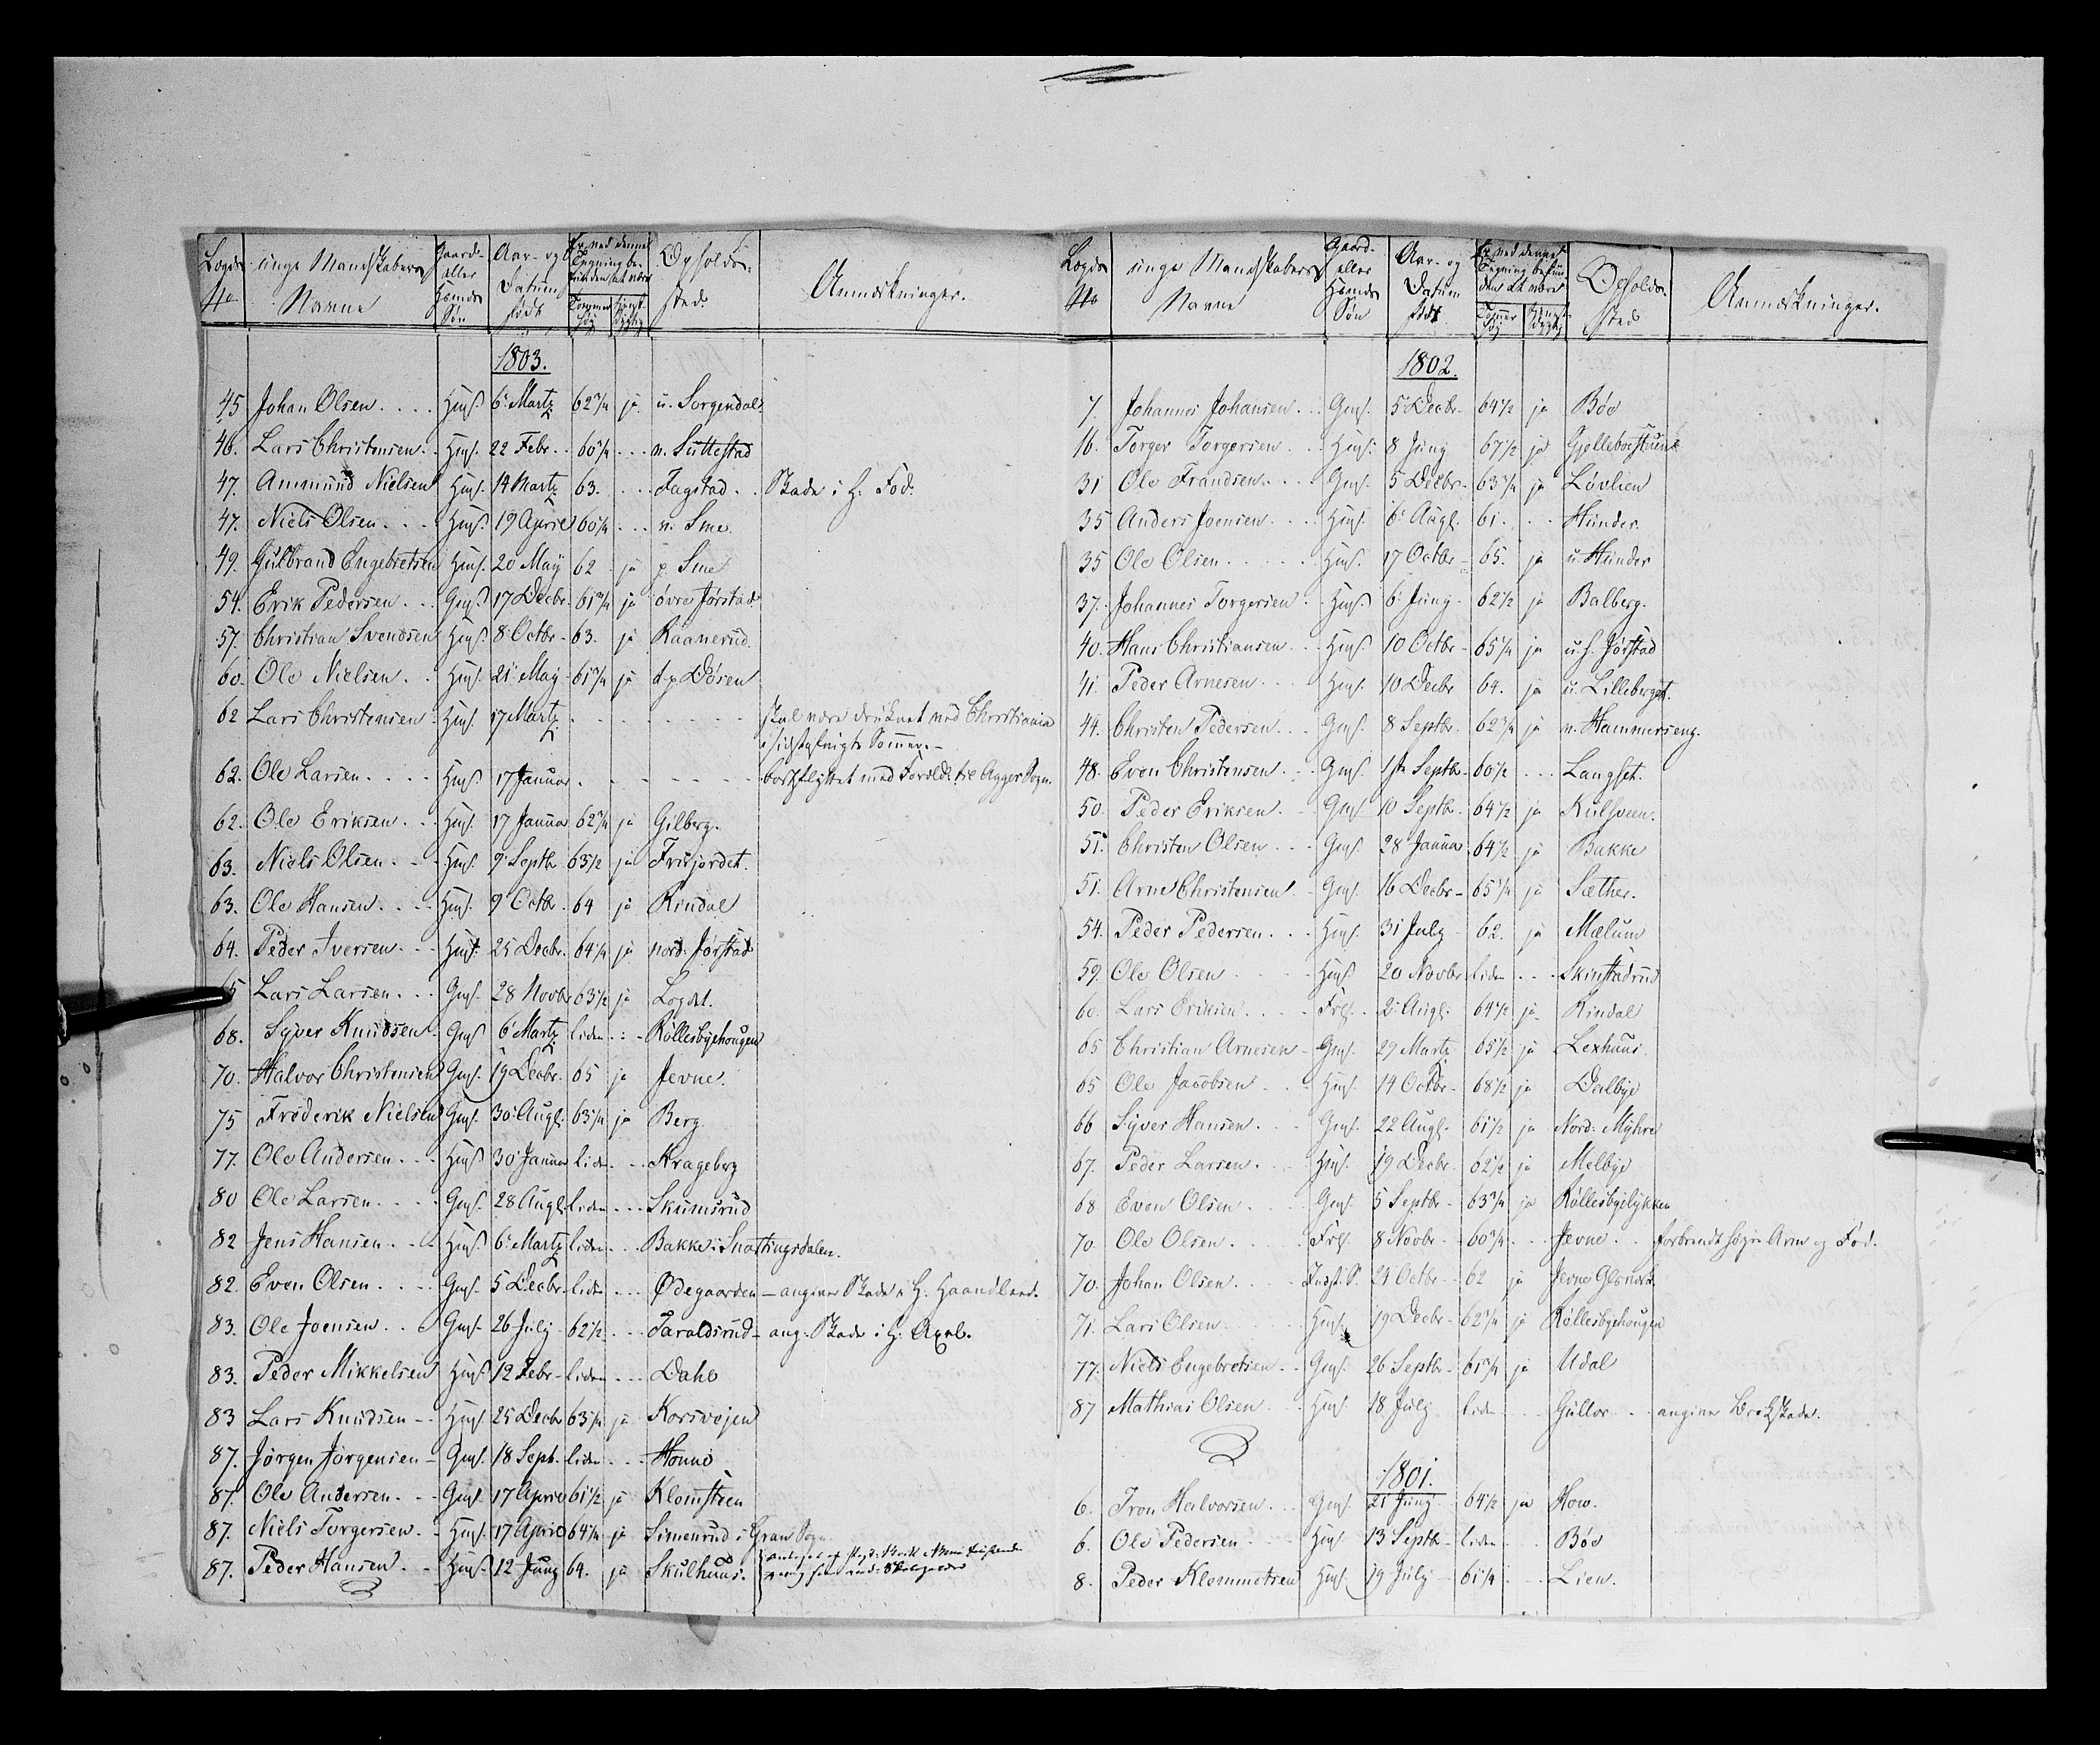 Lægds No | unge Mandskabers Navne | Gaard- eller Huusmds Søn | Aar- og Datum født | Er ved denne Tegning befunden at være Tommer høy | Tjenstdygtig | Opholdssted | Anmærkninger.
1803.
45 Johan Olsen . . . . Hms. 6 Martz 62 3/4 ja u. Sorgendal
46. Lars Christensen . Hms. 22 Febr. 60 1/4 . . . n. Suttestad
47. Ammund Nielsen Hms. 14 Martz 63. . . . Fagstad . . Skade i h. Fod.
47. Niels Olsen . . . Hms. 19 April 60 1/4 . . . n. Sme.
49. Gulbrand Engebretsen Hms. 20 May 62 ja p. Sme
54. Erik Pedersen . . Gms. 17 Decbr. 61 3/4 ja øvre Jørstad
57. Christian Svendsen Hms. 8 Octbr. 63. ja Raanerud.
60. Ole Nielsen . . Hms. 21 May 61 3/4 ja d. p. Døsen
62 Lars Christensen Hms. 17 Martz . . . . skal være druknet ved Christiania
i sidstafvigte Sommer. –
62. Ole Larsen . . . . Hms. 17 Januar . . . . bortflyttet med Foreld. til Agger Sogn.
62. Ole Eriksen . . . Hms. 17 Januar 62 3/4 ja Gilberg.
63. Niels Olsen . . . Hms. 9 Septbr 63 1/2 ja Frujordet.
63. Ole Hansen . . . . Hms. 9 Octbr. 64 ja Rindal
64. Peder Iversen . . . Hms. 25 Decbr. 64 1/4 ja nord. Jørstad
65 Lars Larsen . . . Gms. 28 Novbr 63 1/2 ja Logdt.
68. Syver Knudsen Gms. 6 Martz liden . . . Røllesbyehougen
70. Halvor Christensen Gms. 19 Decbr. 65 ja Jevne.
75 Frederik Nielsen Gms. 30 Augt. 63 1/4 ja Berg
77. Ole Andersen . . . Hms. 30 Januar liden . . . Krageberg
80 Ole Larsen . . . . Gms. 28 Augt. liden . . . Skumsrud
82 Jens Hansen . . . Hms. 6 Martz liden . . . Bakke i Snertingsdalen.
82. Even Olsen . . . . Gms. 5 Decbr. liden . . . Ødegaarden – angiver Skade i h. Haandleed.
83. Ole Joensen . . Gms. 26 July 62 1/2 . . . Taraldsrud – ang. Skade i h. Axel.
83. Peder Mikkelsen Hms. 12 Febr. liden . . . Dahl
83 Lars Knudsen . . Hms. 25 Decbr 63 1/4 ja Korsvejen
87. Jørgen Jørgensen – Gms. 18 Sept. liden . . . Honne
87. Ole Andersen . . . Gms. 17 April 61 1/2 ja Klomsteen
87. Niels Torgersen . . Hms. 17 April 64 1/4 ja Simenrud i Gran Sogn.
87. Peder Hansen . . Hms. 12 Juny 64. ja Skulhuus.
Lægds No | unge Mandskabers Navne | Gaard- eller Huusmds Søn | Aar- og Datum født | Er ved denne Tegning befunden at være Tommer høy | Tjenstdygtig | Opholdssted | Anmærkninger.
1802.
7. Johannes Johansen . . Gms. 5 Decbr. 64 1/2 ja Bøe
16. Torger Torgersen . . . Hms. 8 Juny 67 1/2 ja
31 Ole Frandsen . . . Gms. 5 Decbr. 63 1/4 ja Løvlien
35 Anders Joensen . . . Hms. 6 Augt. 61. . . Hunder.
35 Ole Olsen . . . . Hms. 17 Octbr. 65. ja u. Hunder
37. Johannes Torgersen . Hms. 6 Juny 62 1/2 ja Balberg.
40. Hans Christiansen . . Hms. 10 Octbr. 65 1/4 ja u. h. Jørstad
41. Peder Arnesen . . . Hms. 10 Decbr 64. ja u. Lilleberget.
44. Christen Pedersen . . Gms. 8 Septbr. 62 3/4 ja n. Hammerseng.
48. Even Christensen . . . Gms. 1ste Septbr. 60 1/2 . . . Langset.
50. Peder Eriksen . Gms. 10 Septbr. 64 1/2 ja Kulsveen.
51. Christen Olsen . . . Gms. 28 Januar 64 1/2 ja Bakke
51. Arne Christensen . Gms. 16 Decbr. 65 1/4 ja Sæther.
54. Peder Pedersen . . . Hms. 31 July 62. ja Mælum
59. Ole Olsen . . . Hms. 20 Novbr. liden . . . Skinstadrud
60. Lars Eriksen . . . Frlg. 2 Augt. 64 1/2 ja Rindal
65 Christian Arnesen – Gms. 29 Martz 65 1/2 ja Lexhuus.
65 Ole Jacobsen . . . Hms. 14 Octbr. 68 1/2 ja Dælbye
66 Syver Hansen . . . Gms. 22 Augt. 61 1/2 ja Nord. Myhre
67. Peder Larsen . . . Hms. 19 Decbr. 62 1/2 ja Melbye
68 Even Olsen . . . Gms. 5 Septbr. 63 3/4 ja Røllesbyelykken
70. Ole Olsen . . . . Frlg. 8 Novbr. 60 3/4 . . . Jevne . . forbrendt høyre Arm og Fod.
70. Johan Olsen . . . . Indst. S. 24 Octbr. 62 ja Jevne
71. Lars Olsen . . . . Hms. 19 Decbr. 62 3/4 ja Røllesbyehougen
77. Niels Engebretsen . . Gms. 26 Septbr. 61 3/4 ja Udal
87 Mathias Olsen . . . Hms. 18 July liden . . . Gullor . . angiver Brokskade.
1801.
6. Iron Halvorsen . . . Gms. 21 Juny 64 1/2 ja How.
6. Ole Pedersen . . . Hms. 13 Septbr. liden . . Bøe
8. Peder Klemmetsen Hms. 19 July 61 1/4 . . . Lien.